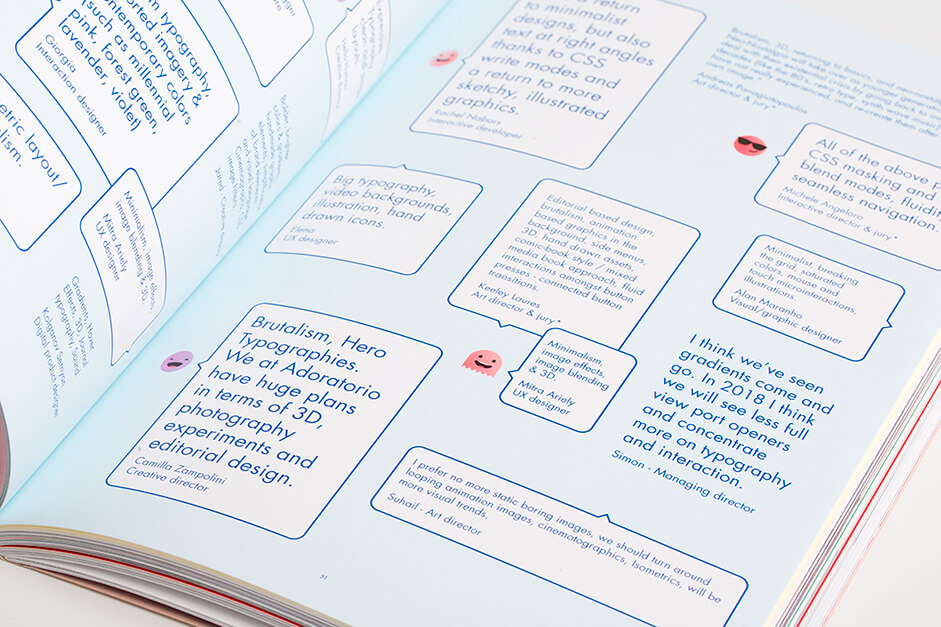 typography,
orted imagery &
ontemporary colors
(such as millennial
pink, forest green,
lavender, violet)
Giorgia
Interaction designer
etric layout/
alism.
Minimalism, image effects,
image blending
& 3D.
Mitra Ariely
UX designer
a return
to minimalist
designs, but also
text at right angles
thanks to CSS
write modes and
a return to more
sketchy, illustrated
graphics.
Rachel Nabors
Interactive developer
Big typography,
video backgrounds,
illustration, hand
drawn icons.
Elena
UX designer
Brutalism, Hero
Typographies.
We at Adoratorio
have huge plans
in terms of 3D,
photography
experiments and
editorial design.
Camilla Zampolini
Creative director
Editorial based design,
brutalism, animation
based graphics in the
background, side menus,
3D, hand drawn assets,
comic-book style / mixed
media book approach, fluid
interactions amongst button
presses - connected button
transitions.
Keeley Laures
Art director & jury*
Minimalism,
image effects,
image blending
& 3D.
Mitra Ariely
UX designer
I prefer no more static boring images, we should turn around
looping animation images, cinematographics, Isometrics, will be
more visual trends.
Suhail - Art director
Andreas Panagiotopoulos
Art director & jury *
All of the above p
CSS masking and
blend modes, fluidi
seamless navigation.
Michele Angeloro
Interactive director & jury*
Minimalist, breaking
the grid, saturated
colors, mouse and
touch microinteractions,
illustrations.
Alan Maranho
Visual/graphic designer
I think we've seen
gradients come and
go. In 2018 I think
we will see less full
view port openers
and concentrate
more on typography
and interaction.
Simon - Managing director
51